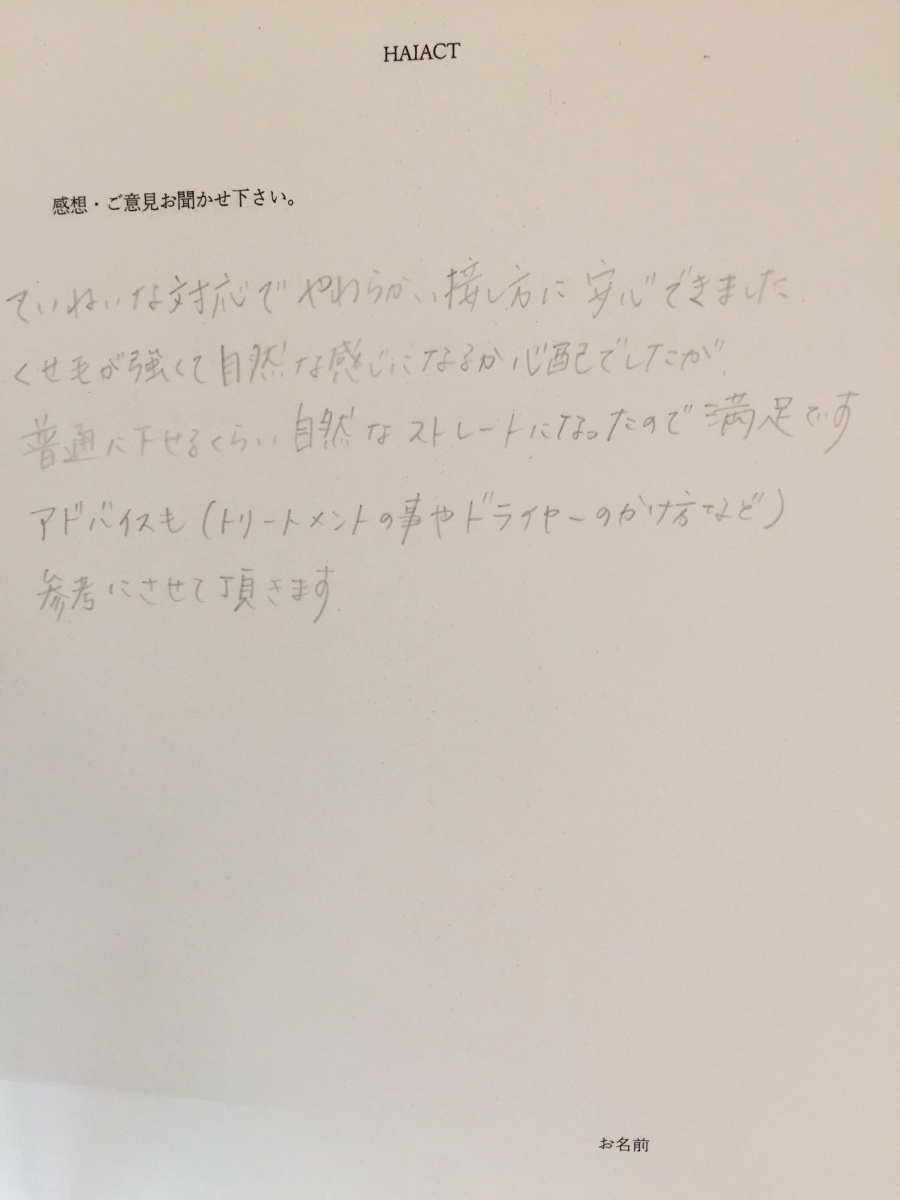 HAIACT
感想・ご意見お聞かせ下さい。
ていねいな対応でやわらかい接し方に安心できました.
くせ毛が強くて自然な感じになるか心配でしたが.
普通に下せるくらい自然なストレートになったので満足です
アドバイスも(トリートメントの事やドライヤーのかけ方など)
参考にさせて頂きます.
お名前